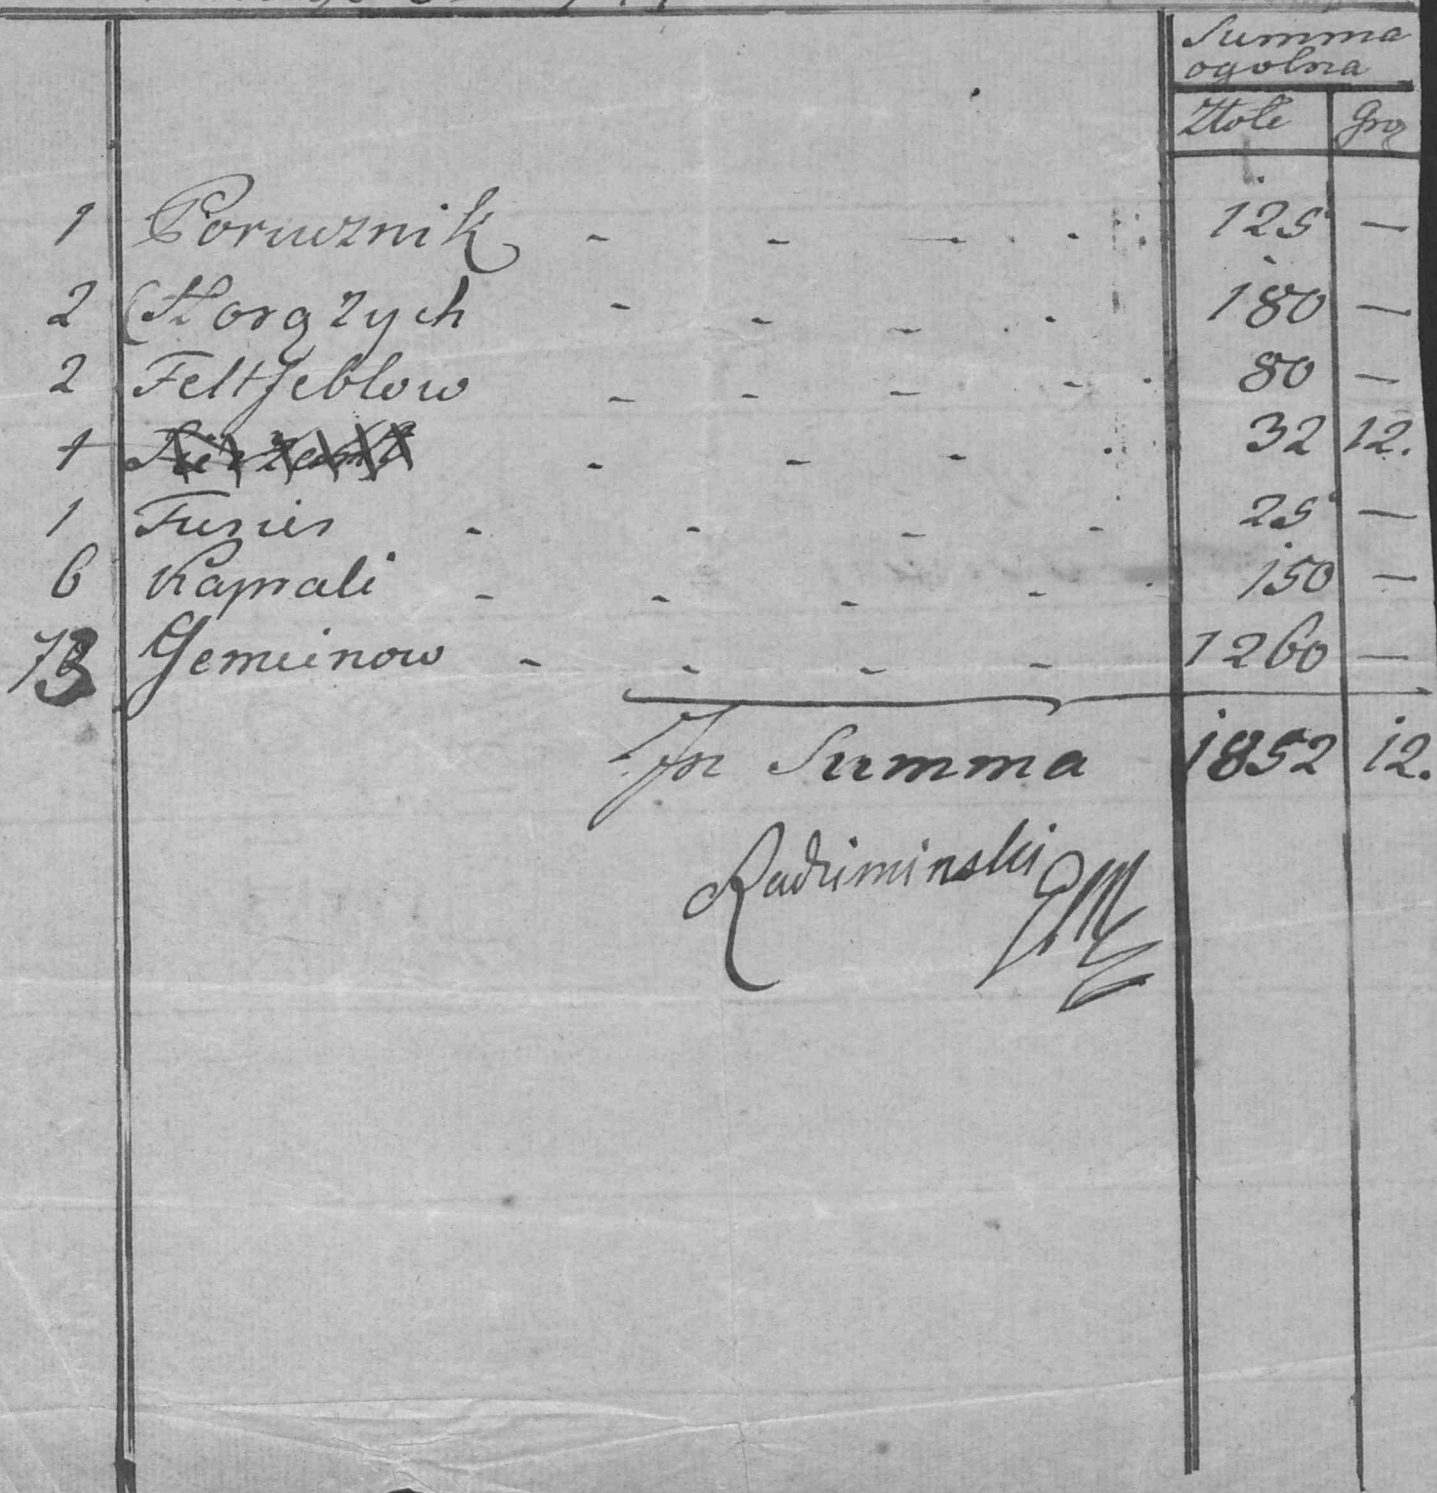 Summa
ogolna
Złote Gro
1 Porucznik - - - - 125 —
2 Chorążych - - - - 180 —
2 Feltfeblow - - - - 80 —
1 - - - - 32 12.
1 Furier - - - - 25 —
6 Kaprali - - - - 150 —
73 Gemeinow - - - - 1260 —
In Summa 1852 12.
Radziminski GM